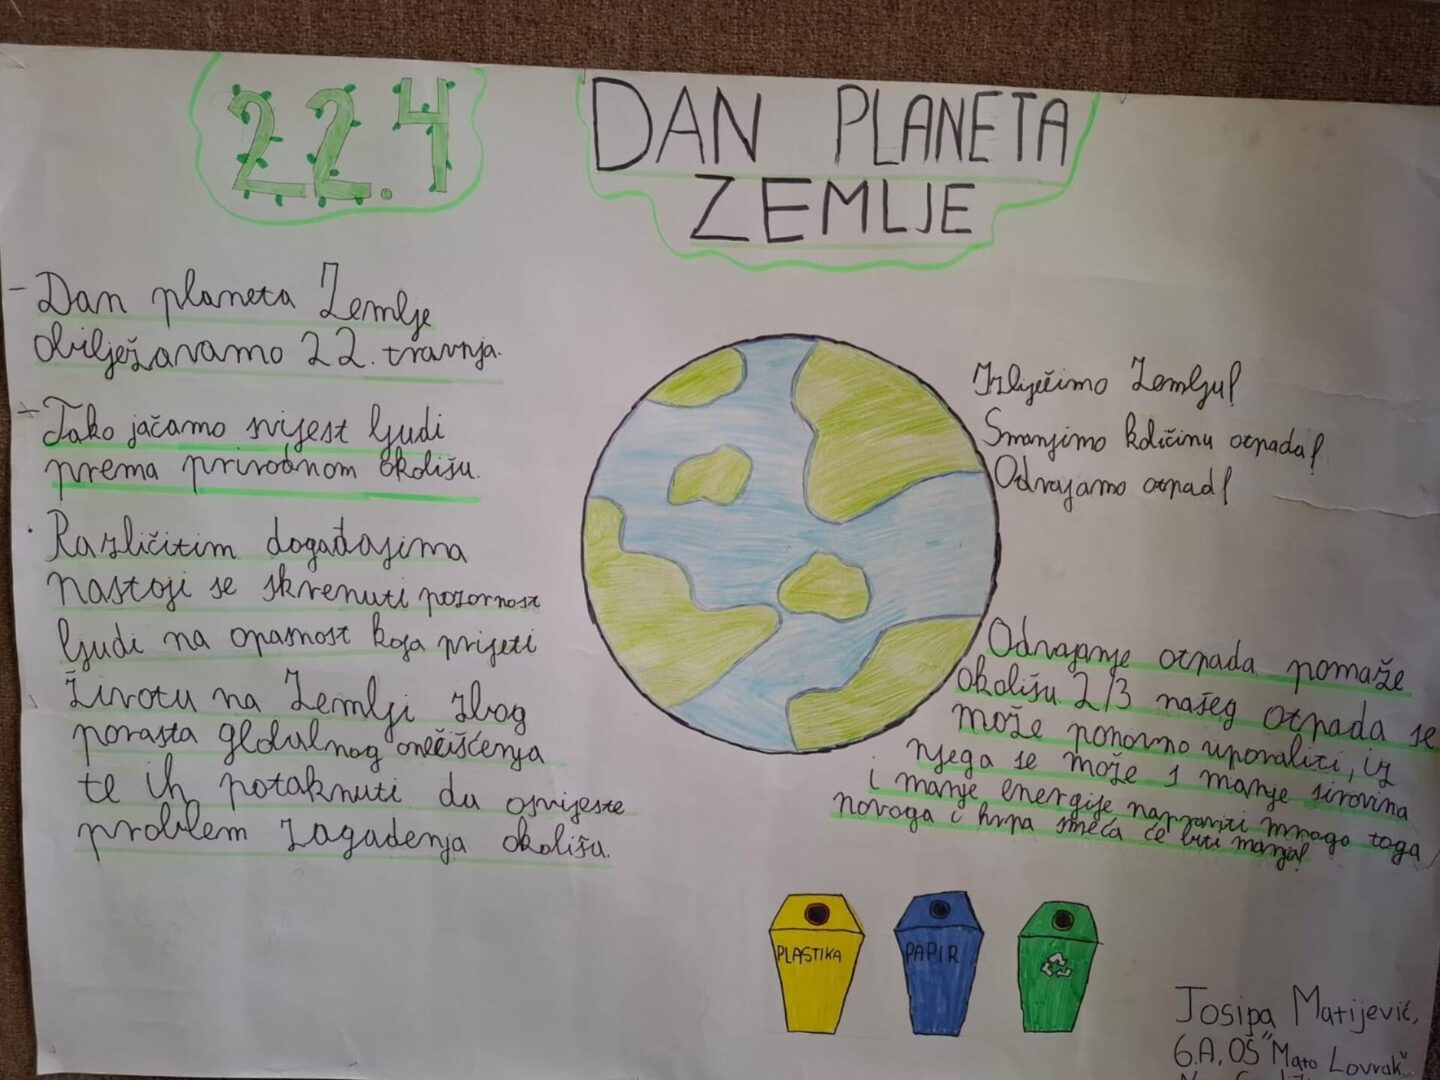 22.4
DAN PLANETA
ZEMLJE
- Dan planeta Zemlje
obilježavamo 22. travnja.
- Tako jačamo svijest ljudi
prema prirodnom okolišu.
· Različitim događajima
nastoji se skrenuti pozornost
ljudi na opasnost koja prijeti
životu na Zemlji zbog
porasta globalnog onečišćenja
te ih potaknuti da osvijeste
problem zagađenja okoliša.
Izliječimo Zemlju!
Smanjimo količinu otpada!
Odvajamo otpad!
Odvajanje otpada pomaže
okolišu. 2/3 našeg otpada se
može ponovno uporabiti, iz
njega se može s manje sirovina
i manje energije napraviti mnogo toga
novoga i hrpa smeća će biti manja!
PLASTIKA
PAPIR
Josipa Matijević,
6.A, OŠ "Mato Lovrak"